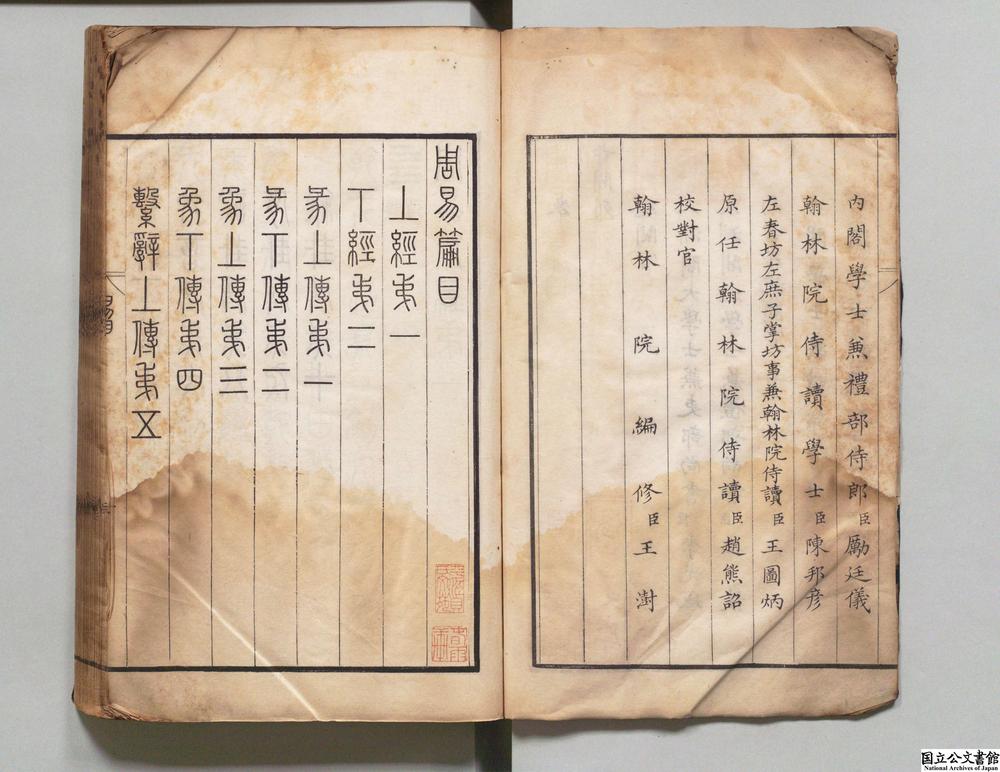 內閣學士兼禮部侍郎臣勵廷儀
翰林院侍讀學士臣陳邦彥
左春坊左庶子掌坊事兼翰林院侍讀臣王圖炳
原任翰林院侍讀臣趙熊詔
校對官
翰林院編修臣王澍
周易篇目
上經弟一
下經弟二
彖上傳弟一
彖下傳弟二
象上傳弟三
象下傳弟四
繫辭上傳弟五
国立公文書館
National Archives of Japan